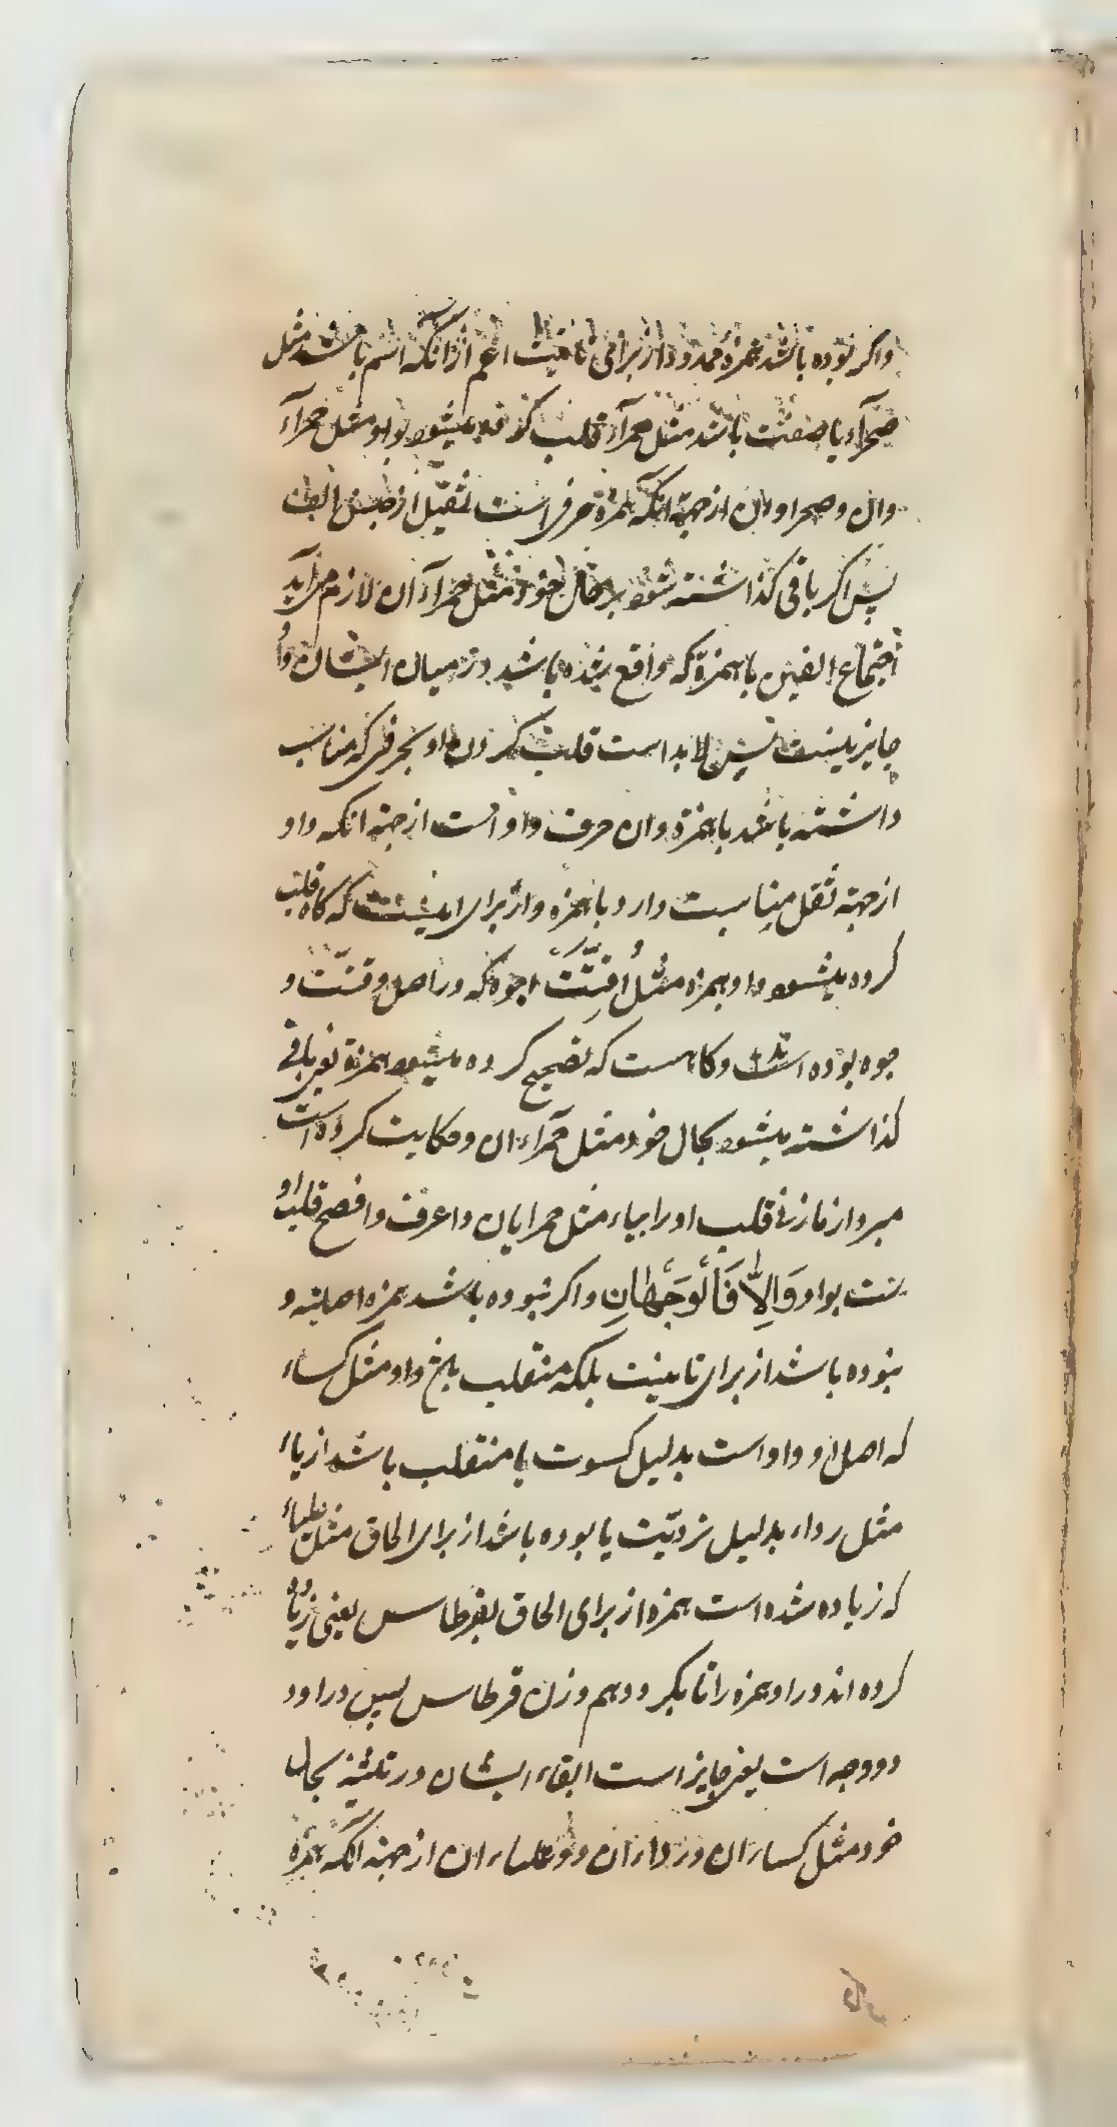 واکر بوده باشد همزه ممدوده از برای تانیث اعم ازانکه اسم باشد مثل
صحرآء یا صفت باشد مثل حمرآء قلب کرده میشود بواو مثل حمرآء
وان و صحراوان از جهة انکه همزة حرفی است ثقیل از جنس الف
پس اکر باقی کذاشته شود بر حال خود مثل حمرآءان لازم می‌آید
اجتماع الفین با همزة که واقع شده باشد در میان ایشان و
جایز نیست پس لابد است قلب کردن او بحرفی که مناسب
داشته باشد با همزة وان حرف واو است از جهة انکه واو
از جهة ثقل مناسبت دارد با همزه و از برای اینست که کاه قلب
کرده میشود واو بهمزه مثل اُقِّتَتْ اجوه که در اصل وقتت و
جوه بوده است وکاهست که تصحیح کرده میشود همزة یعنی باقی
کذاشته میشود بحال خود مثل حمرآءان و حکایت کرده است
مبرد از مازنی قلب او را بیاء مثل حمرایان و اعرف و افصح قلب او
ست بواو وَاِلَّا فَالْوَجْهَانِ واکر نبوده باشد همزه اصلیه و
نبوده باشد از برای تانیث بلکه منقلب از واو مثل کساء
که اصل او واو است بدلیل کسوت یا منقلب باشد از یاء
مثل رداء بدلیل ردیّت یا بوده باشد از برای الحاق مثل علباء
که زیاده شده است همزه از برای الحاق بقرطاس یعنی زیاد
کرده اند در او همزه را تا بکردد هم وزن قرطاس پس در او
دو وجه است یعنی جایز است ابقاء ایشان در تثنیه بحال
خود مثل کساءان و رداءان و علباءان از جهة انکه همزة